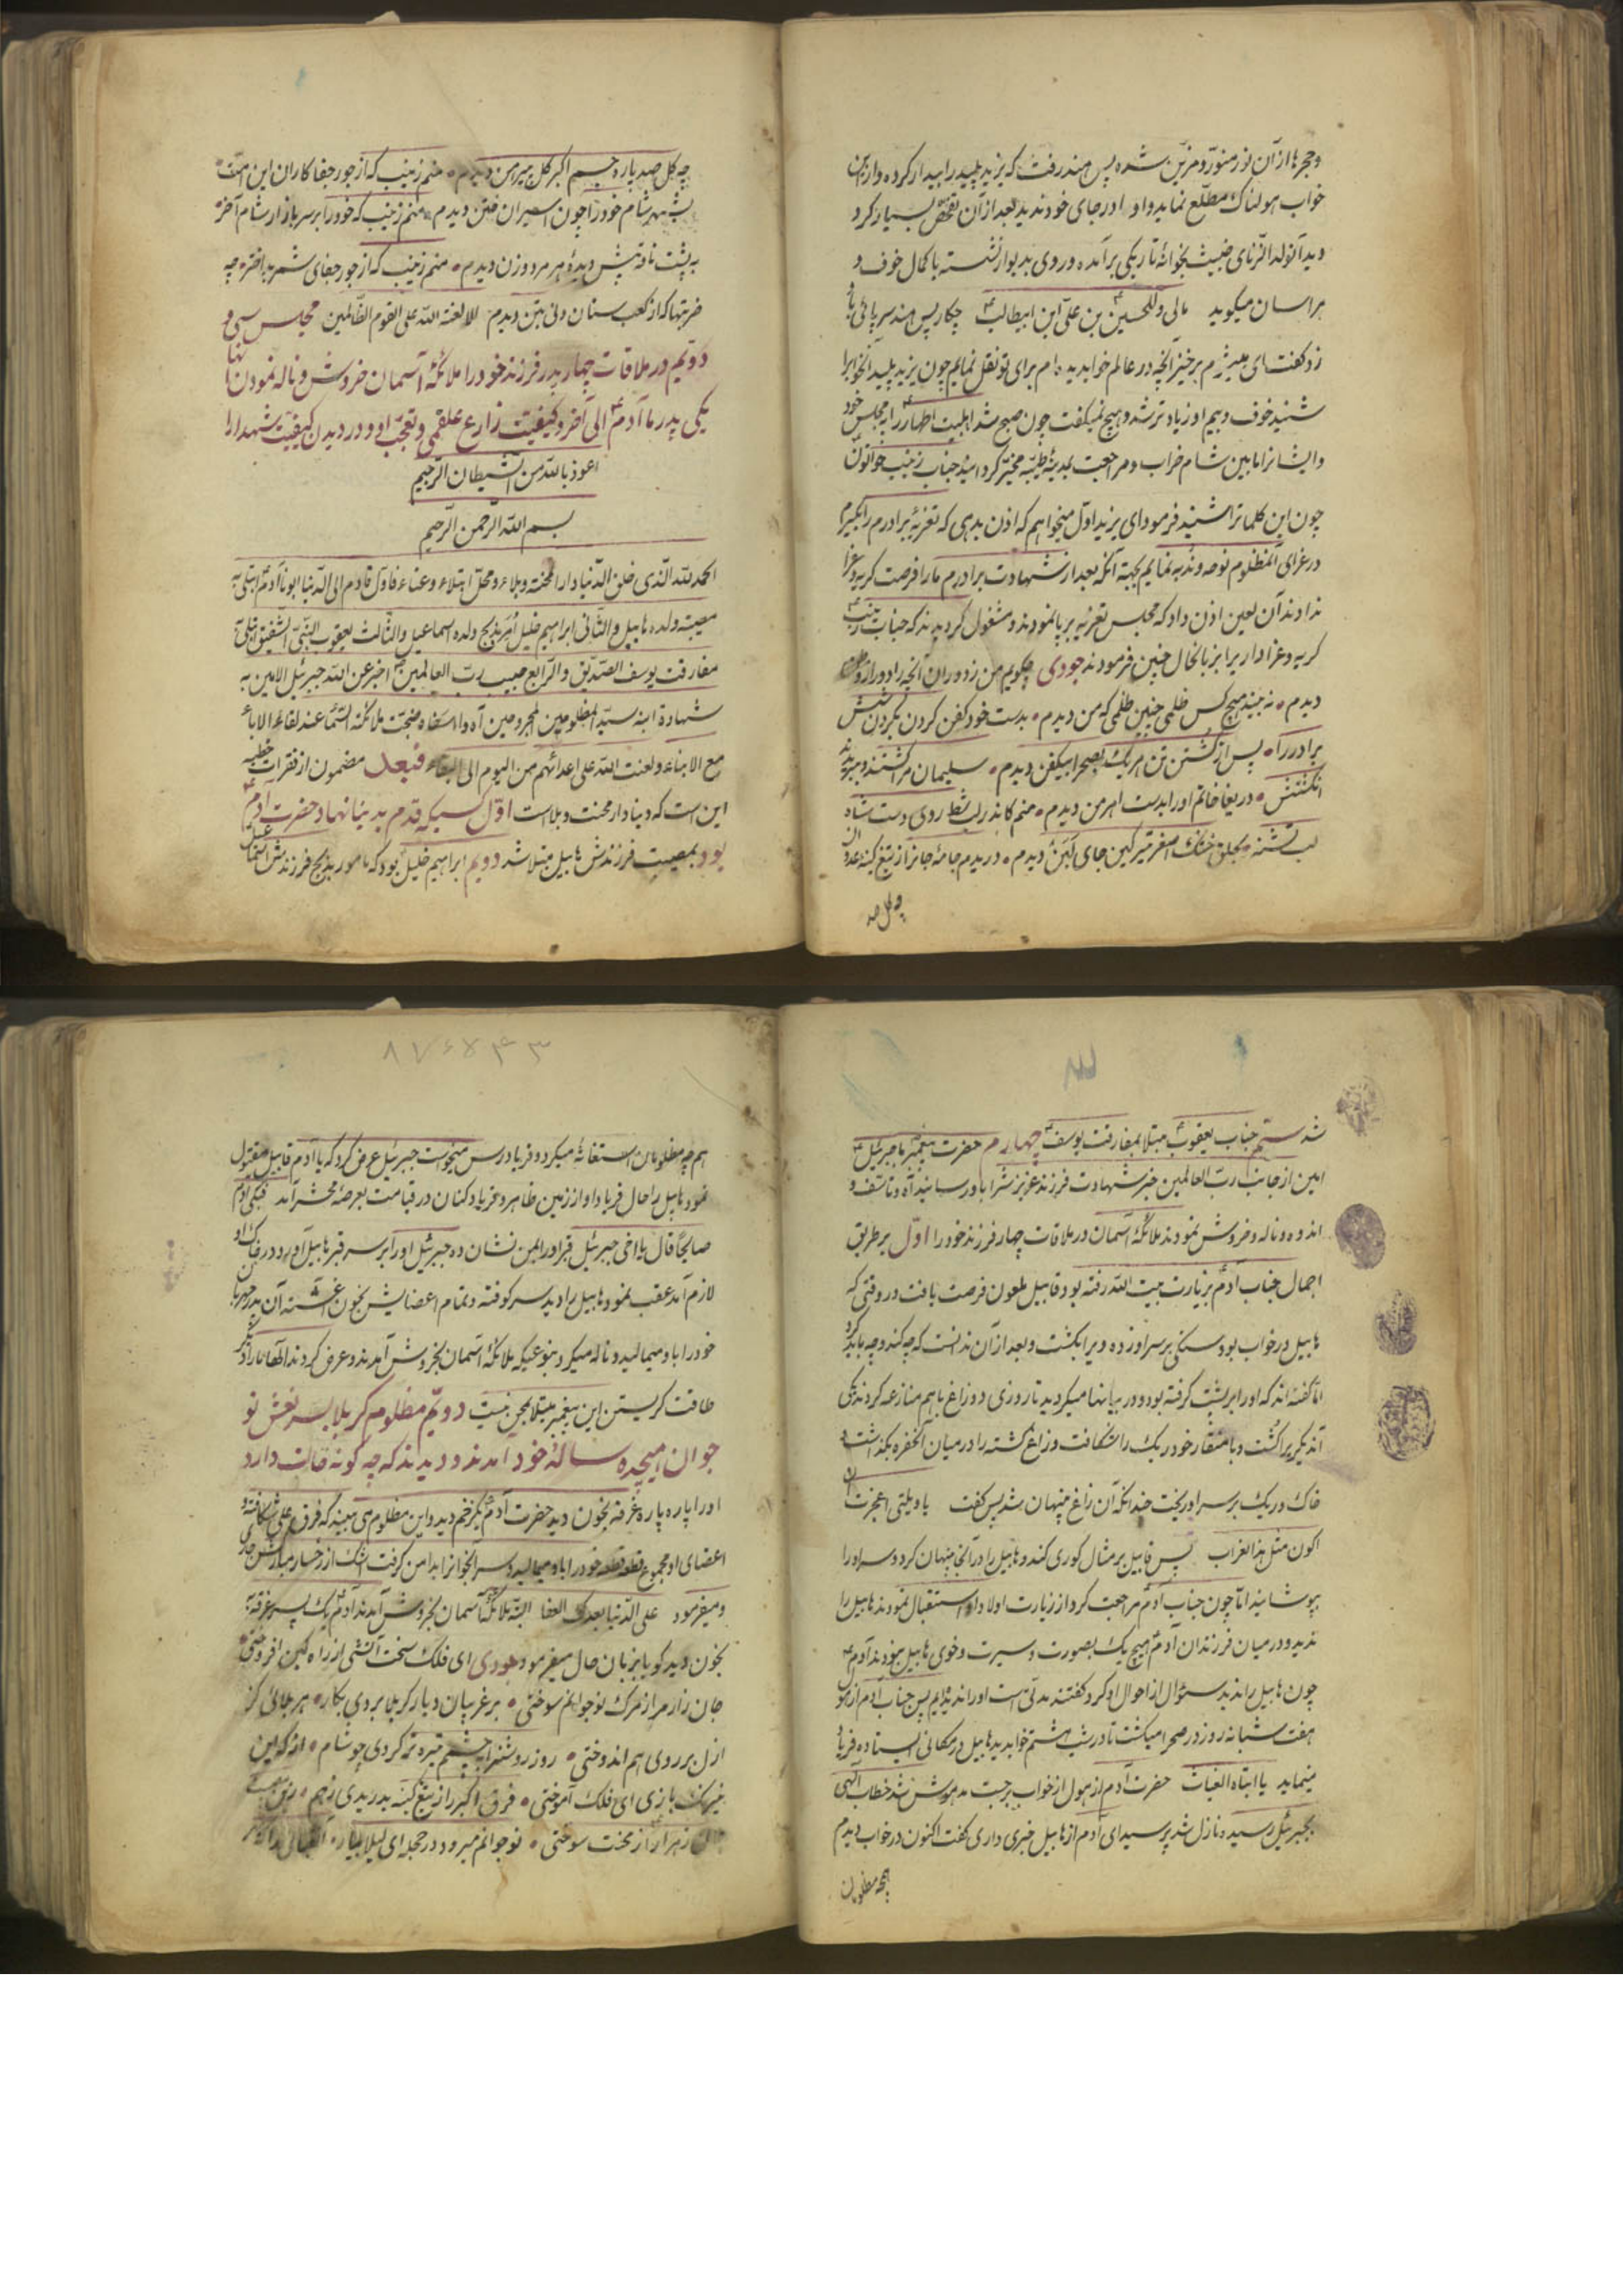 وحجرها از آن نور منور و مزین شده پس هند رفت که یزید پلید را بیدار کرده و از این
خواب هولناک مطلع نماید و او را در جای خود ندید بعد از آن تفحص بسیار کرد
دید آن ولد الزنای خبیث بخوانهٔ تاریکی برآمده و روی بدیوار نشسته با کمال خوف و
هراسان میگوید مالی وللحسین بن علی ابن ابیطالب چکار پس هند سر پائی باو
زد گفت ای بیشرم برخیز آنچه در عالم خواب دیده‌ام برای تو نقل نمایم چون یزید پلید آنخوابرا
شنید خوف و بیم او زیادتر شد و هیچ نمیگفت چون صبح شد اهلبیت اطهار را بمجلس خود
و ایشانرا مابین شام خراب و مراجعت بمدینهٔ طیبه مخیر گردانید جناب زینب خواتون
چون این کلماترا شنید فرمود ای یزید اول میخواهم که اذن بدهی که تعزیهٔ برادرم را بگیرم
در عزای آنمظلوم نوحه و ندبه نمایم بجهته آنکه بعد از شهادت برادرم ما را فرصت گریه و عزا
ندادند آن لعین اذن داد که مجلس تعزیه بر پا نمودند و مشغول گردیدند که جناب زینب
گریه و عزادار برابر زبانحال چنین فرمودند جودی چگویم من ز دوران آنچه را
دیدم • نه بیند هیچکس ظلمی چنین ظلمی که من دیدم • بدست خود کفن کردن بگردن شش
برادر را • پس از کشتن تن هر یک بصحرا بیکفن دیدم • سلیمان مرا کشتند و ببریدند
انگشتش • دریغا خاتم او را بدست اهرمن دیدم • منم کاندر لب شط روی دست شاه
لب تشنه • بحلق خشک اصغر تیر کین جای لبن دیدم • دریدم جامهٔ جانرا از تیغ کینهٔ عدوان
چو گل صد
چه گل صد پاره جسم اکبر گل پیرهن دیدم • منم زینب که از جور جفاکاران این امت •
بشهر شام خود را چون اسیران ختن دیدم • منم زینب که خود را بر سر بازار شام آخر •
به پشت ناقه پیش دیدهٔ هر مرد و زن دیدم • منم زینب که از جور جفای شمر بداختر • چه
ضربتها که از کعب سنان و نی بتن دیدم الا لعنة الله علی القوم الظالمین مجلس سی و
دویم در ملاقات چهار پدر فرزند خود را ملائکهٔ آسمان خروش و ناله نمودن آنها
یکی پدر ما آدم ع الی آخر و کیفیت زارع علقمی و تعجب او و در دیدن کیفیت شهدا را
اعوذ بالله من الشیطان الرجیم
بسم الله الرحمن الرحیم
الحمد لله الذی خلق الدنیا دار المحنة و بلاء و محل ابتلاء و عناء فاول قادم الی الدنیا ابونا آدم ابتلی به
مصیبة ولده هابیل والثانی ابراهیم خلیل أمر بذبح ولده اسماعیل والثالث یعقوب النبی الشفیق ابتلی
مفارقت یوسف الصدیق والرابع حبیب رب العالمین اخبر عن الله جبرئیل الامین به
شهادة ابنه سید المظلومین المجروحین آه وا اسفاه وضجت ملائکة السماء عند لقاء الاباء
مع الابناء ولعنت الله علی اعدائهم من الیوم الی البقاء فبعد مضمون از فقرات خطبه
این است که دنیا دار محنت و بلاست اول سیکه قدم بدنیا نهاد حضرت آدم ع
بود بمصیبت فرزندش هابیل مبتلا شد دویم ابراهیم خلیل بود که مامور بذبح فرزندش اسماعیل
شد سیم جناب یعقوب مبتلا بمفارقت یوسف چهارم حضرت پیغمبر با جبرئیل
امین از جانب رب العالمین خبر شهادت فرزند عزیزش را باو رسانید آه و تاسف و
اندوه و ناله و خروش نمودند ملائکهٔ آسمان در ملاقات چهار فرزند خود را اول بر طریق
اجمال جناب آدم بزیارت بیت الله رفته بود قابیل ملعون فرصت یافت در وقتی که
هابیل در خواب بود سنگی بر سر او زده و یرا بکشت و بعد از آن ندانست که چه کند و چه باید کرد
اما گفته‌اند که او را بر پشت گرفته بود و در بیابانها میگردید تا روزی دو زاغ با هم منازعه کردند یکی
آندیگریرا کشت و با منقار خود ریک را شکافت و زاغ کشته را در میان آنحفره بگذاشت و
خاک و ریک بر سر او ریخت چندانکه آن زاغ پنهان شد پس گفت یا ویلتی اعجزت ان
اکون مثل هذا الغراب پس قابیل بر مثال گوری کند و هابیل را در آنجا پنهان کرد و سر او را
بپوشانید اما چون جناب آدم مراجعت کرد از زیارت اولاد او استقبال نمودند هابیل را
ندید و در میان فرزندان آدم هیچ یک بصورت و سیرت و خوی هابیل نبودند آدم
چون هابیل را ندید سئوال از احوال او کرد گفتند مدتی است او را ندیدیم پس جناب آدم از هو
هفت شبانه روز در صحرا میگشت تا در شب هشتم خوابدید هابیل در مکانی ایستاده فریاد
مینماید یا ابتاه الغیاث حضرت آدم از هول از خواب برجست مدهوش شد خطاب الهی
بجبرئیل رسیده نازل شد پرسید ای آدم از هابیل خبری داری گفت اکنون در خواب دیدم
همچه مظلومان
۸ ۷ ۶ ۵ ۴ ۳
همچه مظلومان استغاثه میکرد و فریادرس میخواست جبرئیل عرض کرد که یا آدم قابیل مقتول
نمود هابیل را حال فریاد او از زمین ظاهر و فریاد کنان در قیامت بعرصهٔ محشر آمد فبکی آدم
صایحا قال یا اخی جبرئیل قبر او را بمن نشان ده جبرئیل او را بر سر قبر هابیل آورد و در خاک او
لازم آمد عقب نمود هابیل را دید سر کوفته و تمام اعضایش بخون آغشته آن پدر
خود را باو میمالید و ناله میکرد بنوعیکه ملائکهٔ آسمان بخروش آمدند و عرض کردند الها ما را دیگر
طاقت گریستن این پیغمبر مبتلا بمحن نیست دویم مظلوم کربلا بسر نعش نو
جوان هیجده سالهٔ خود آمدند و دیدند که چه گونه حالت دارد
او را پاره پاره غرقه بخون دید حضرت آدم یکزخم دید و این مظلوم می بیند که فرق علی شکافته و
اعضای او مجموع قطعه قطعه خود را باو میمالید و سر آنجوانرا بدامن گرفت اشک از رخسار مبارکش جاری
و میفرمود علی الدنیا بعدک العفا البته ملائکهٔ آسمان بخروش آمدند آدم یک پسر غرقه
بخون دید گویا بزبان حال میفرمود جودی ای فلک سخت آتشی از راه کین افروختی •
جان زار مرا از مرگ نوجوانم سوختی • بر غریبان دیار کربلا بردی بکار • هر بلائی کز
ازل بر روی هم اندوختی • روز روشنرا بچشمم تیره‌تر کردی چو شام • از که این
نیرنگ بازی ای فلک آموختی • فرق اکبر را ز تیغ کینه بدریدی ز هم •
زهرا را از محنت سوختی • نوجوانم میرود در حجله ای لیلا بیا •